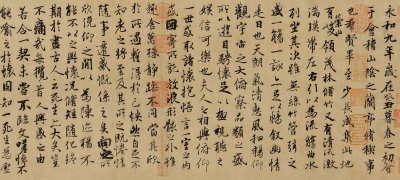 永和九年歲在癸丑暮春之初會
于會稽山陰之蘭亭脩禊事
也群賢畢至少長咸集此地
有崇山峻領茂林脩竹又有清流激
湍暎帶左右引以為流觴曲水
列坐其次雖無絲竹管弦之
盛一觴一詠亦足以暢敘幽情
是日也天朗氣清惠風和暢仰
觀宇宙之大俯察品類之盛
所以遊目騁懷足以極視聽之
娛信可樂也夫人之相與俯仰
一世或取諸懷抱悟言一室之內
或因寄所託放浪形骸之外雖
趣舍萬殊靜躁不同當其欣
於所遇蹔得於己怏然自足不
知老之將至及其所之既惓情
隨事遷感慨係之矣向之所
欣俛仰之閒以為陳迹猶不
能不以之興懷況脩短隨化終
期於盡古人云死生亦大矣豈
不痛哉每攬昔人興感之由
若合一契未嘗不臨文嗟悼不
能喻之於懷固知一死生為虛